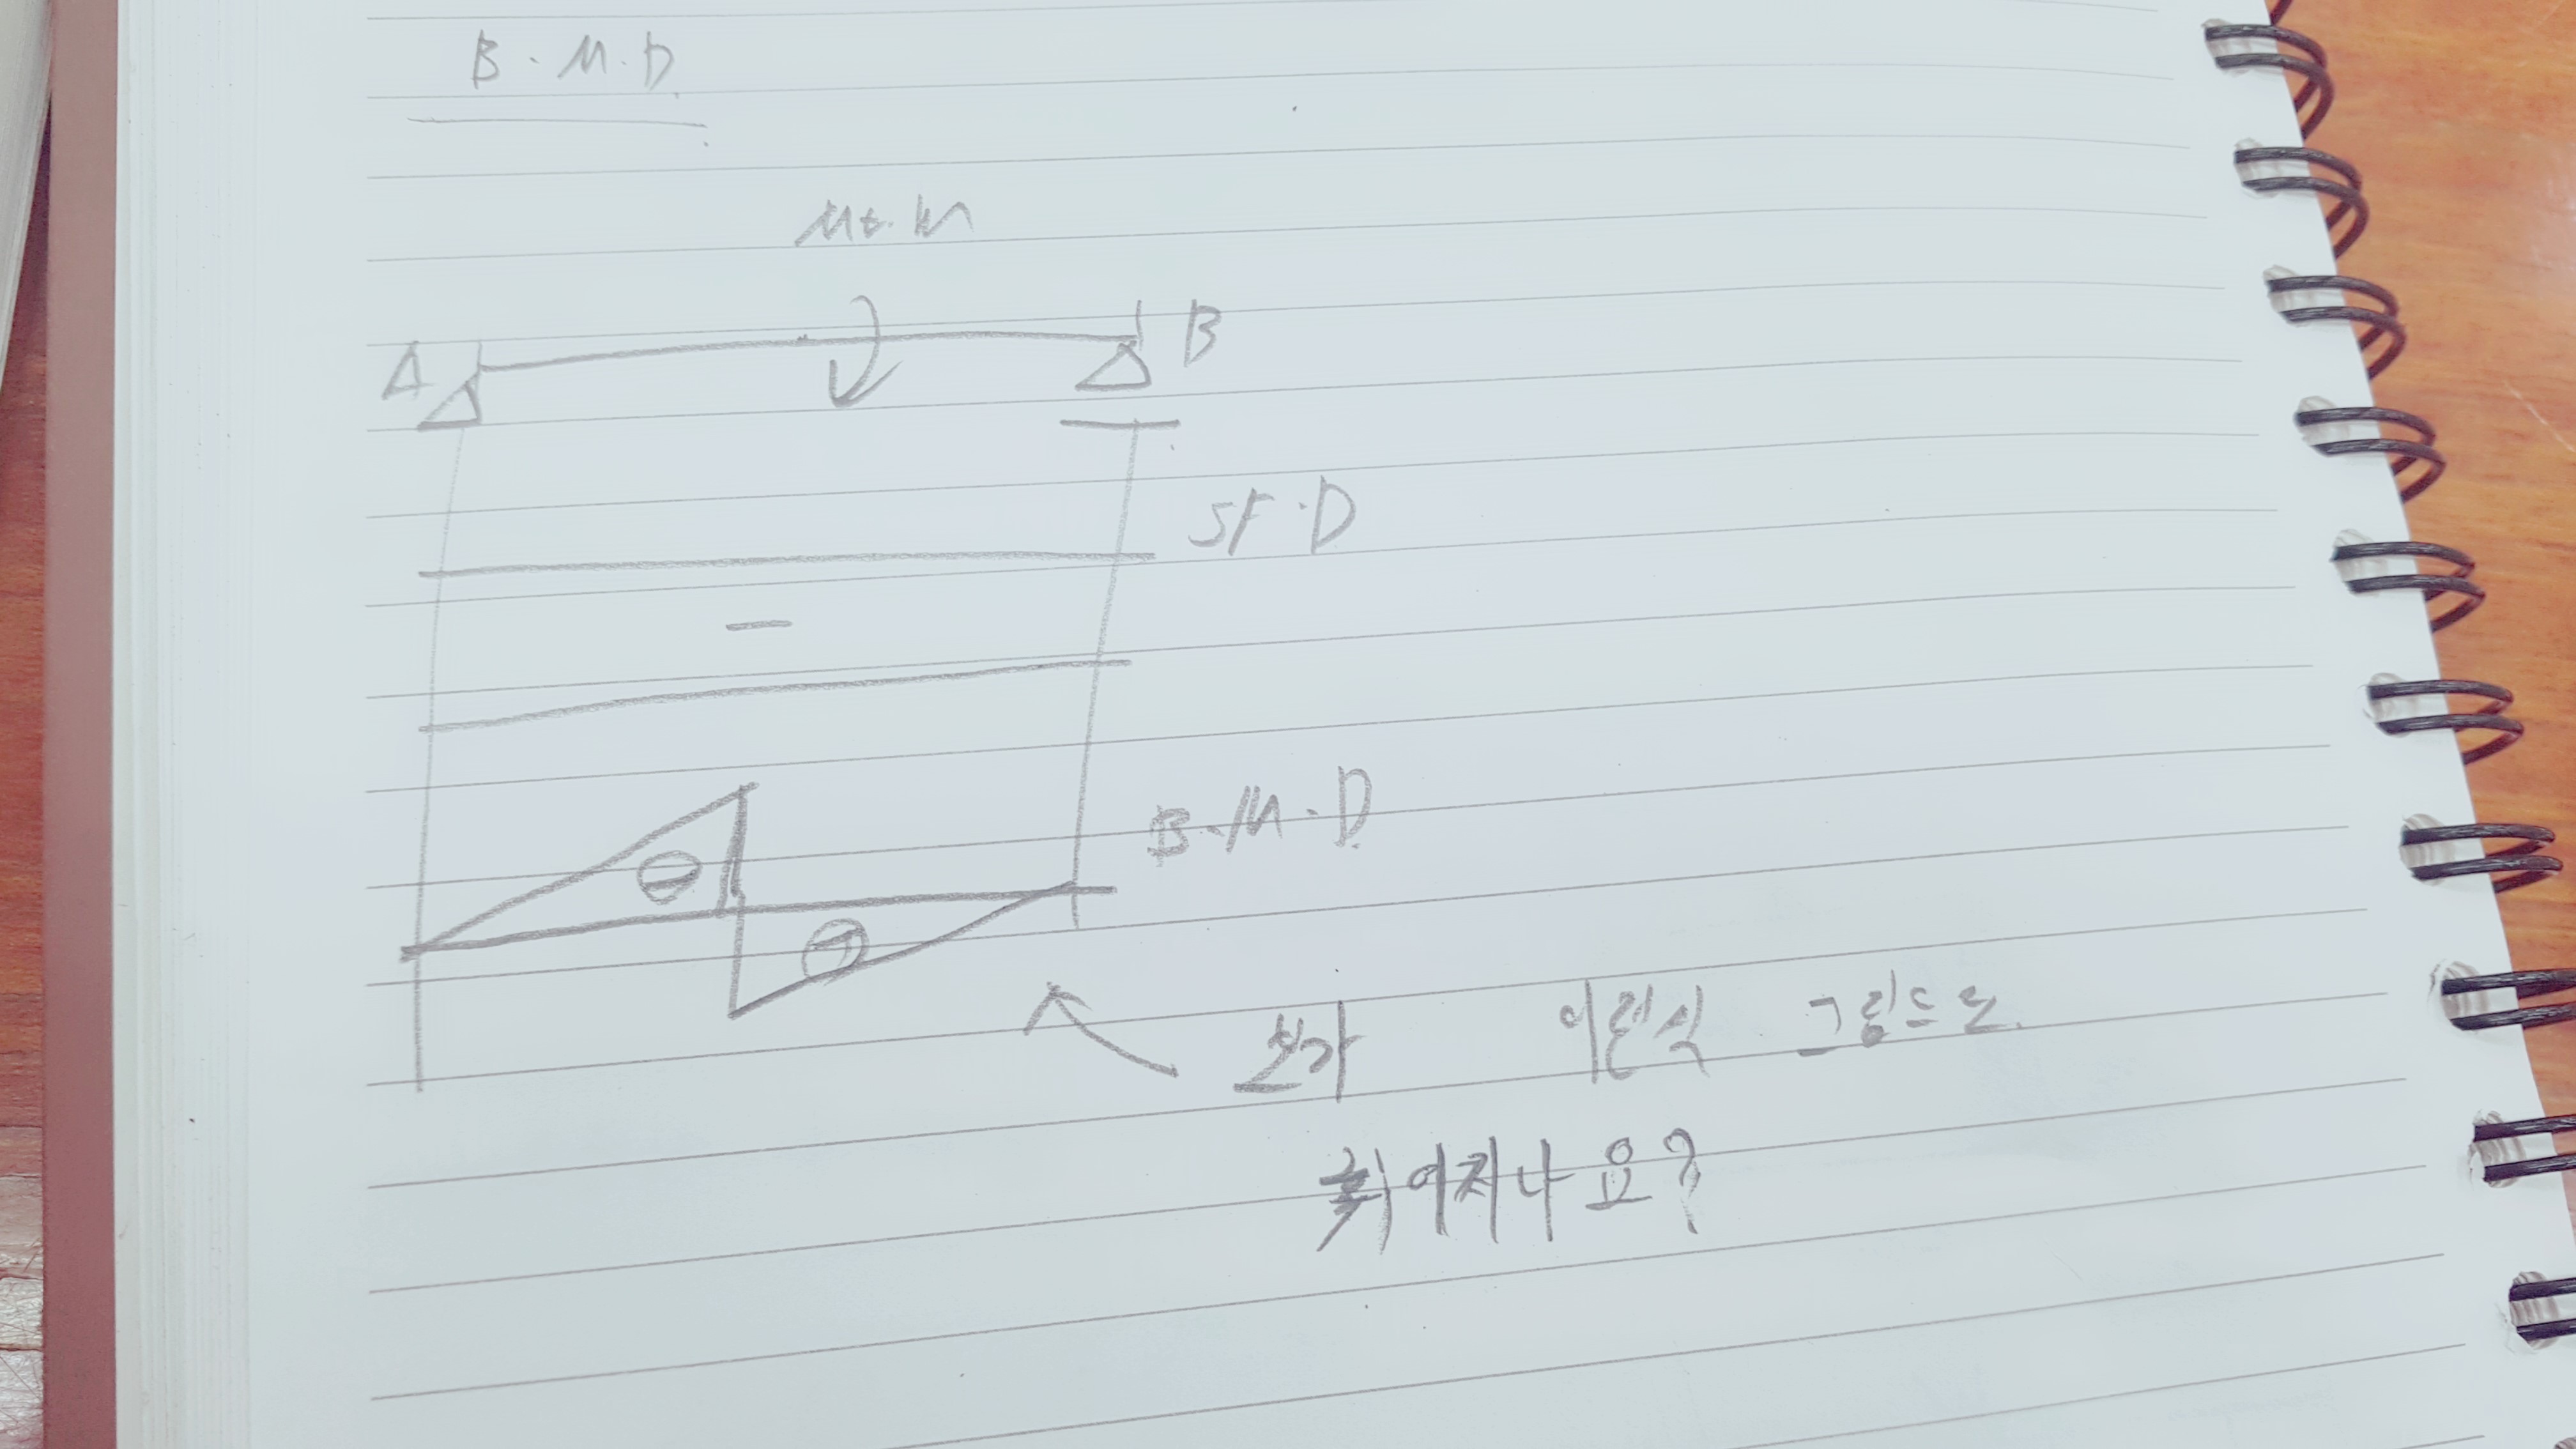 B.M.D
Mt.m
A
B
S.F.D
-
B.M.D
⊖
⊕
보가 이런식 그림으로
휘어지나요?